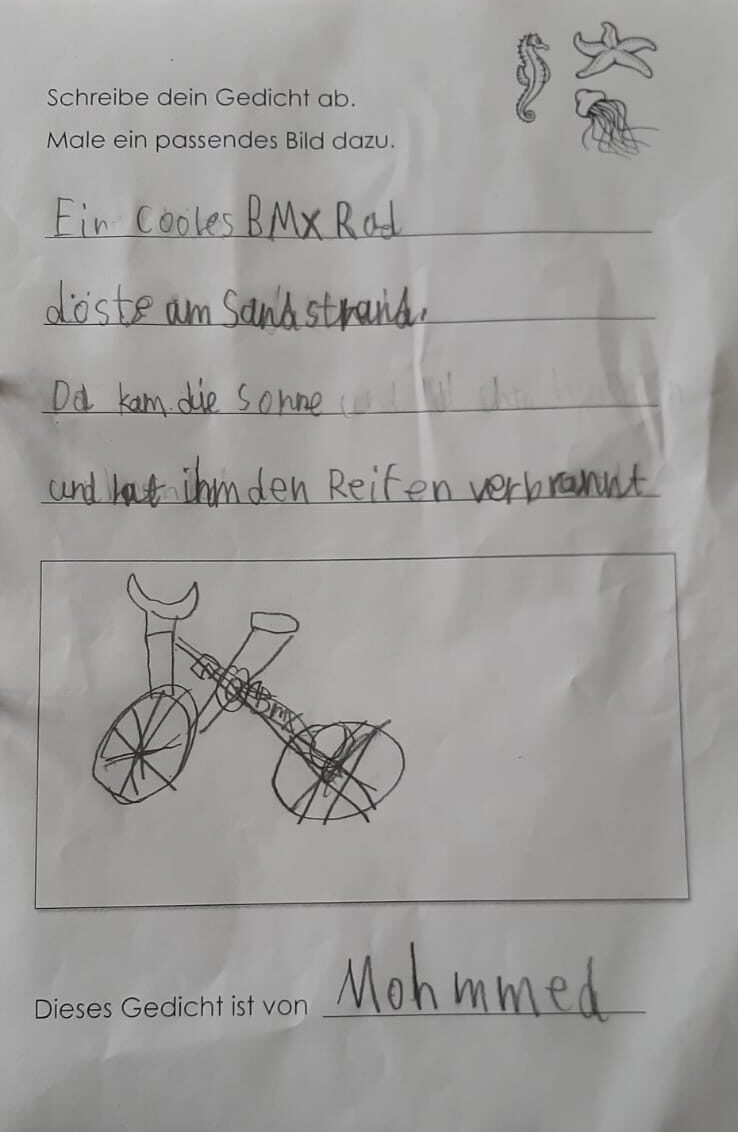 Schreibe dein Gedicht ab.
Male ein passendes Bild dazu.
Ein Cooles BMX Rad
döste am Sandstrand.
Da kam die Sonne
und hat ihm den Reifen verbrannt
Bmx
Dieses Gedicht ist von Mohmmed